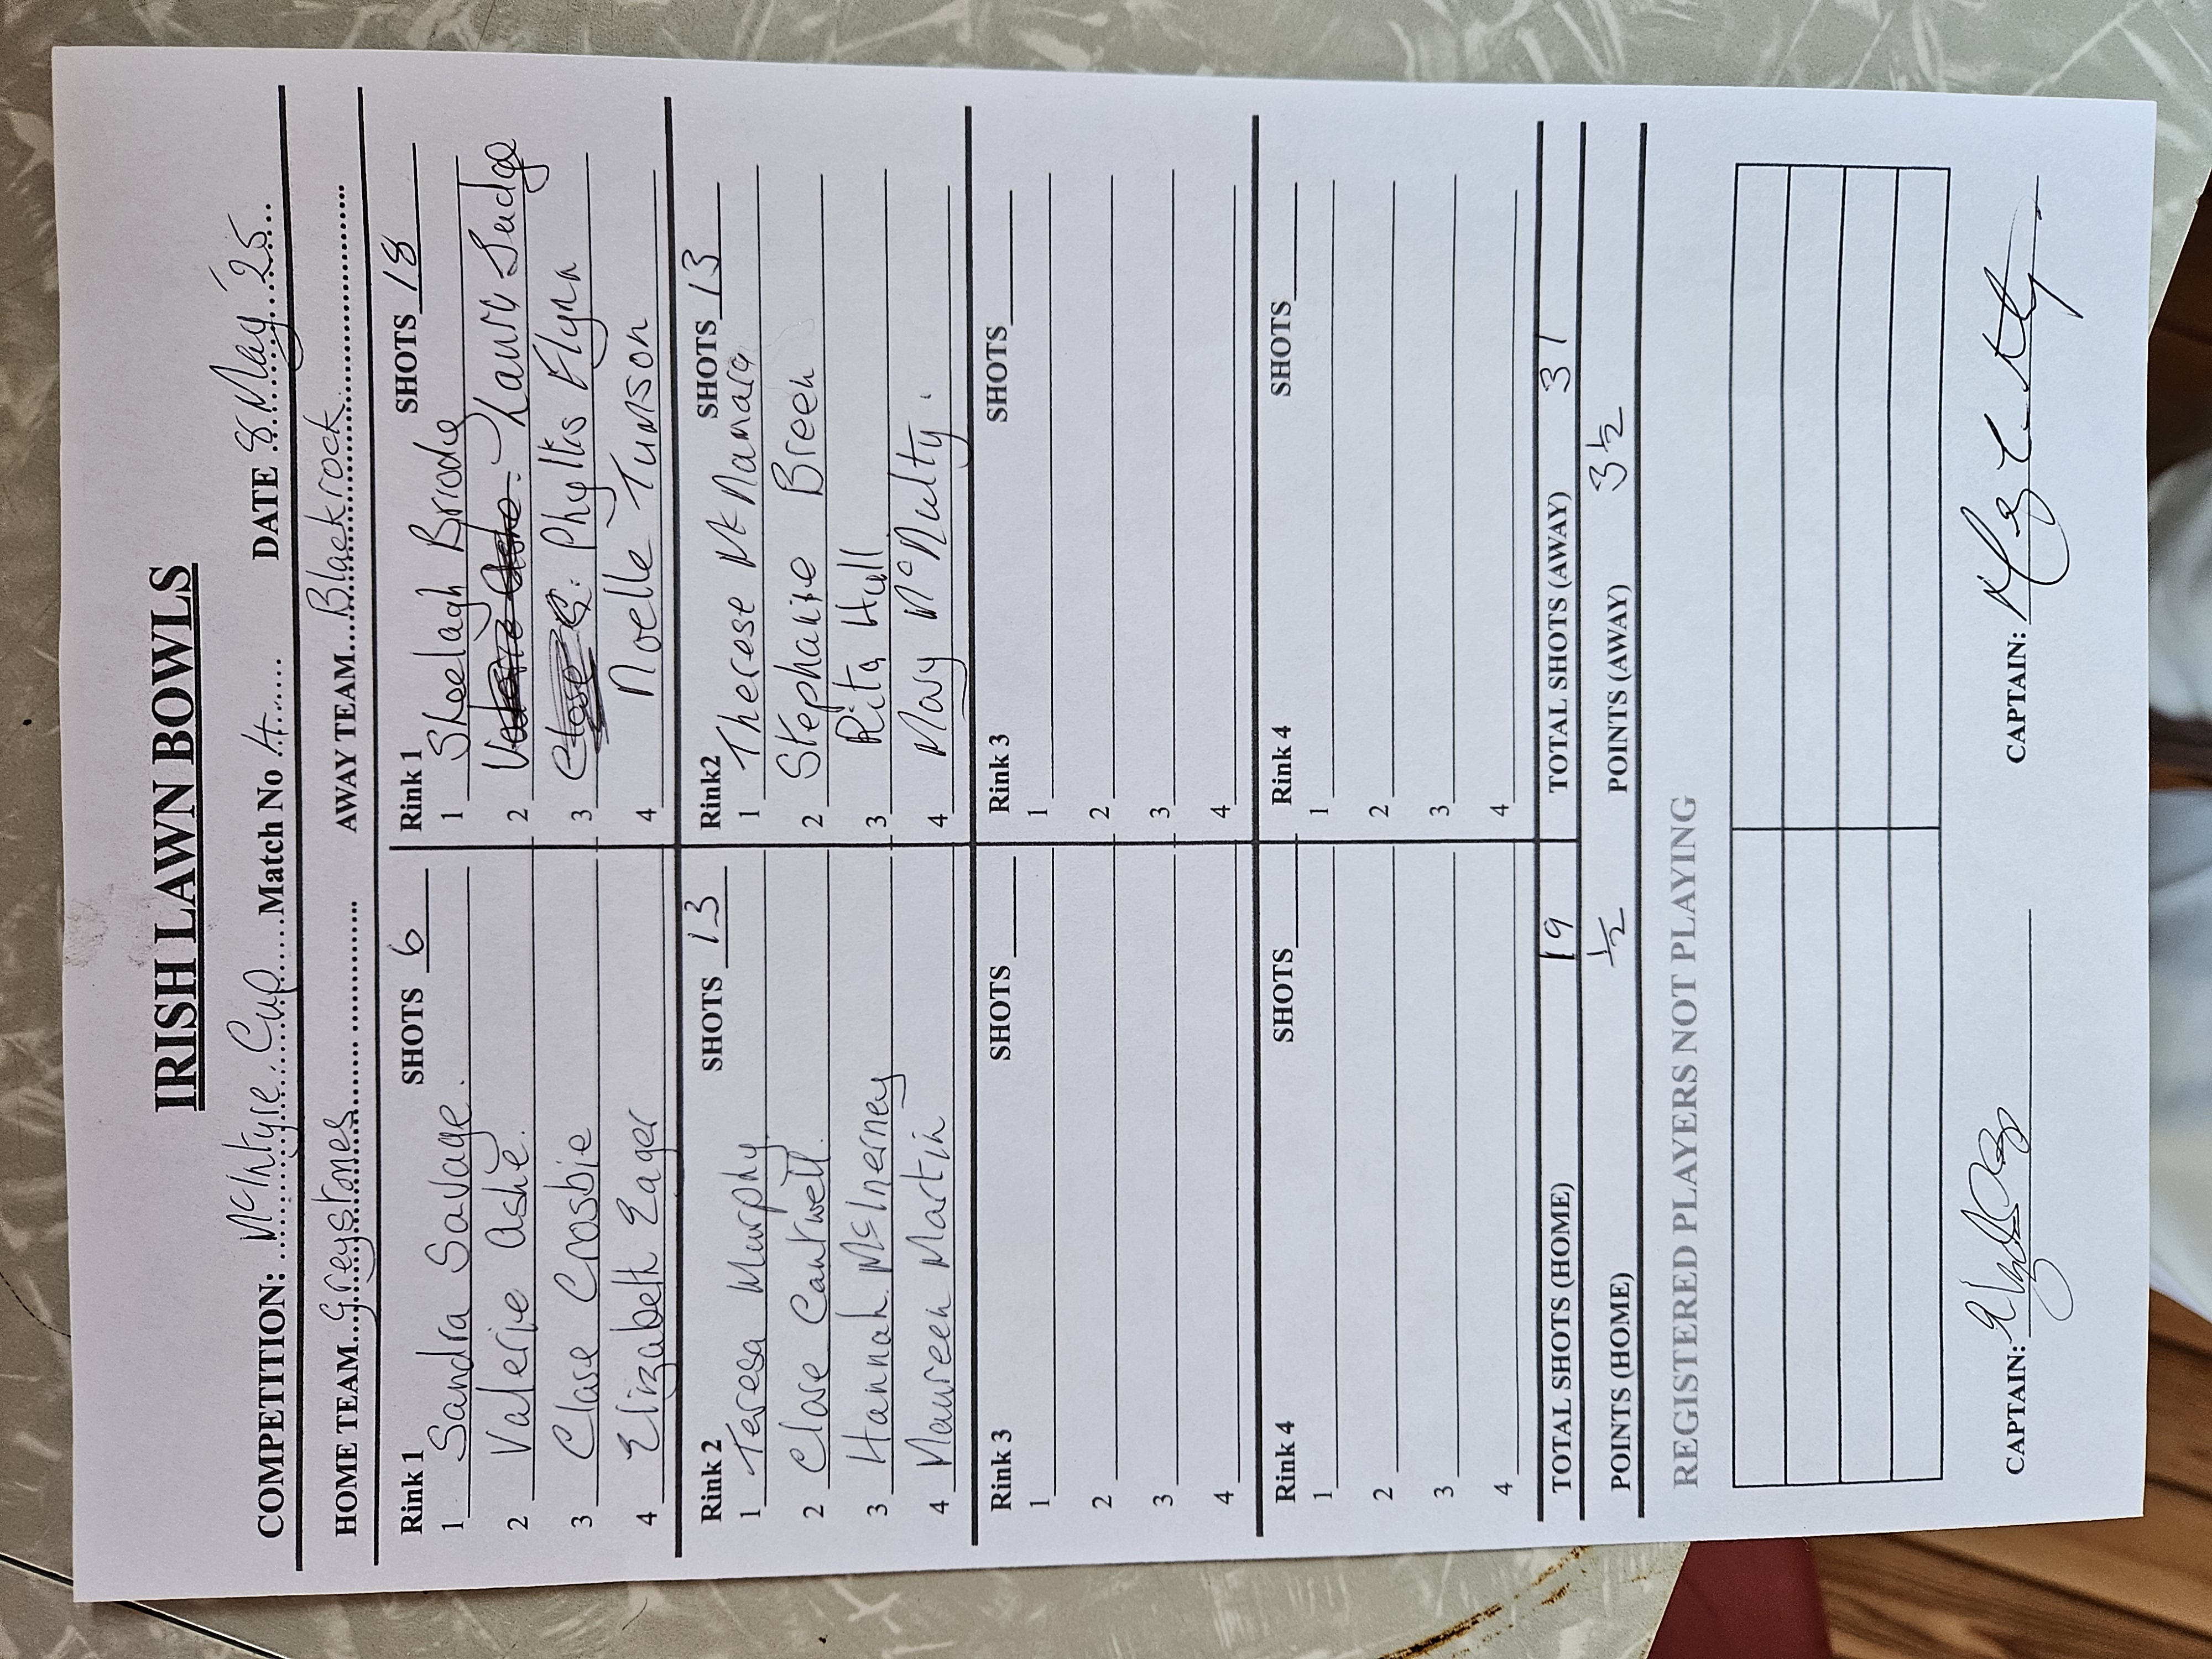 IRISH LAWN BOWLS
COMPETITION: McIntyre Cup Match No 4 DATE 8 May '25
HOME TEAM Greystones AWAY TEAM Blackrock
Rink 1 SHOTS 6 Rink 1 SHOTS 18
1 Sandra Savage. 1 Sheelagh Brride
2 Valerie Ashe. 2 Valerie Ashe. Judge
3 Clare Crosbie 3 Clare C: Phyllis Flynn
4 Elizabeth Eager 4 Noelle
Rink 2 SHOTS 13 Rink2 SHOTS 13
1 Teresa Murphy 1 Therese McNamara
2 Clare Cantwell. 2 Stephanie Breen
3 Hannah McInerney 3 Rita Hull
4 Maureen Martin 4 Mary McNulty.
Rink 3 SHOTS Rink 3 SHOTS
1 1
2 2
3 3
4 4
Rink 4 SHOTS Rink 4 SHOTS
1 1
2 2
3 3
4 4
TOTAL SHOTS (HOME) 19 TOTAL SHOTS (AWAY) 31
POINTS (HOME) ½ POINTS (AWAY) 3½
REGISTERED PLAYERS NOT PLAYING
CAPTAIN: CAPTAIN: